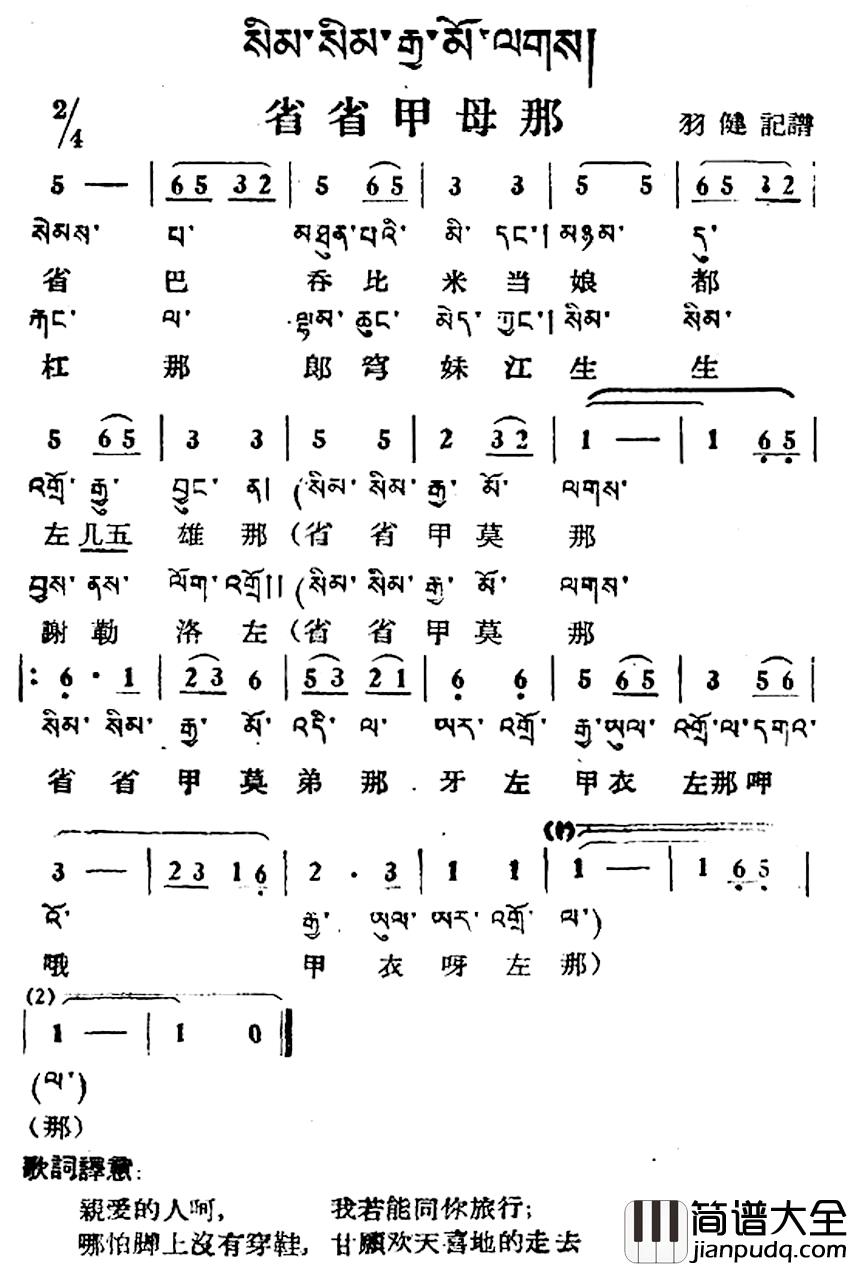 སིམ་སིམ་རྒྱ་མོ་ལགས།
省省甲母那
2/4
羽健記譜
5 — | 6 5 3 2 | 5 6 5 | 3 3 | 5 5 | 6 5 3 2 |
སེམས་ པ་ མཐུན་པའི་ མི་ དང་། མཉམ་ དུ་
省 巴 吞 比 米 当 娘 都
རྐང་ ལ་ ལྷམ་ ཆུང་ མེད་ ཀྱང་། སིམ་ སིམ་
杠 那 郎 穹 妹 江 生 生
5 6 5 | 3 3 | 5 5 | 2 3 2 | 1 — | 1 6 5 |
འགྲོ་ རྒྱུ་ བྱུང་ ན། (སིམ་ སིམ་ རྒྱ་ མོ་ ལགས་
左 几五 雄 那 (省 省 甲 莫 那
བྱས་ ནས་ ལོག་ འགྲོ།། (སིམ་ སིམ་ རྒྱ་ མོ་ ལགས་
謝 勒 洛 左 (省 省 甲 莫 那
|: 6 · 1 | 2 3 6 | 5 3 2 1 | 6 6 | 5 6 5 | 3 5 6 |
སིམ་ སིམ་ རྒྱ་ མོ་ འདི་ ལ་ ཨར་ འགྲོ་ རྒྱ་ཨུལ་ འགྲོ་ལ་དགའ་
省 省 甲 莫 弟 那 . 牙 左 甲 衣 左那呷
3 — | 2 3 1 6 | 2 · 3 | 1 1 | (1) 1 — | 1 6 5 |
འོ་ རྒྱ་ ཨུལ་ ཨར་ འགྲོ་ ལ་)
哦 甲 衣 呀 左 那)
(2)
| 1 — | 1 0 ‖
(ལ་)
(那)
歌詞譯意:
親爱的人呵, 我若能同你旅行;
哪怕脚上沒有穿鞋, 甘願欢天喜地的走去
简谱大全
jianpudq.com